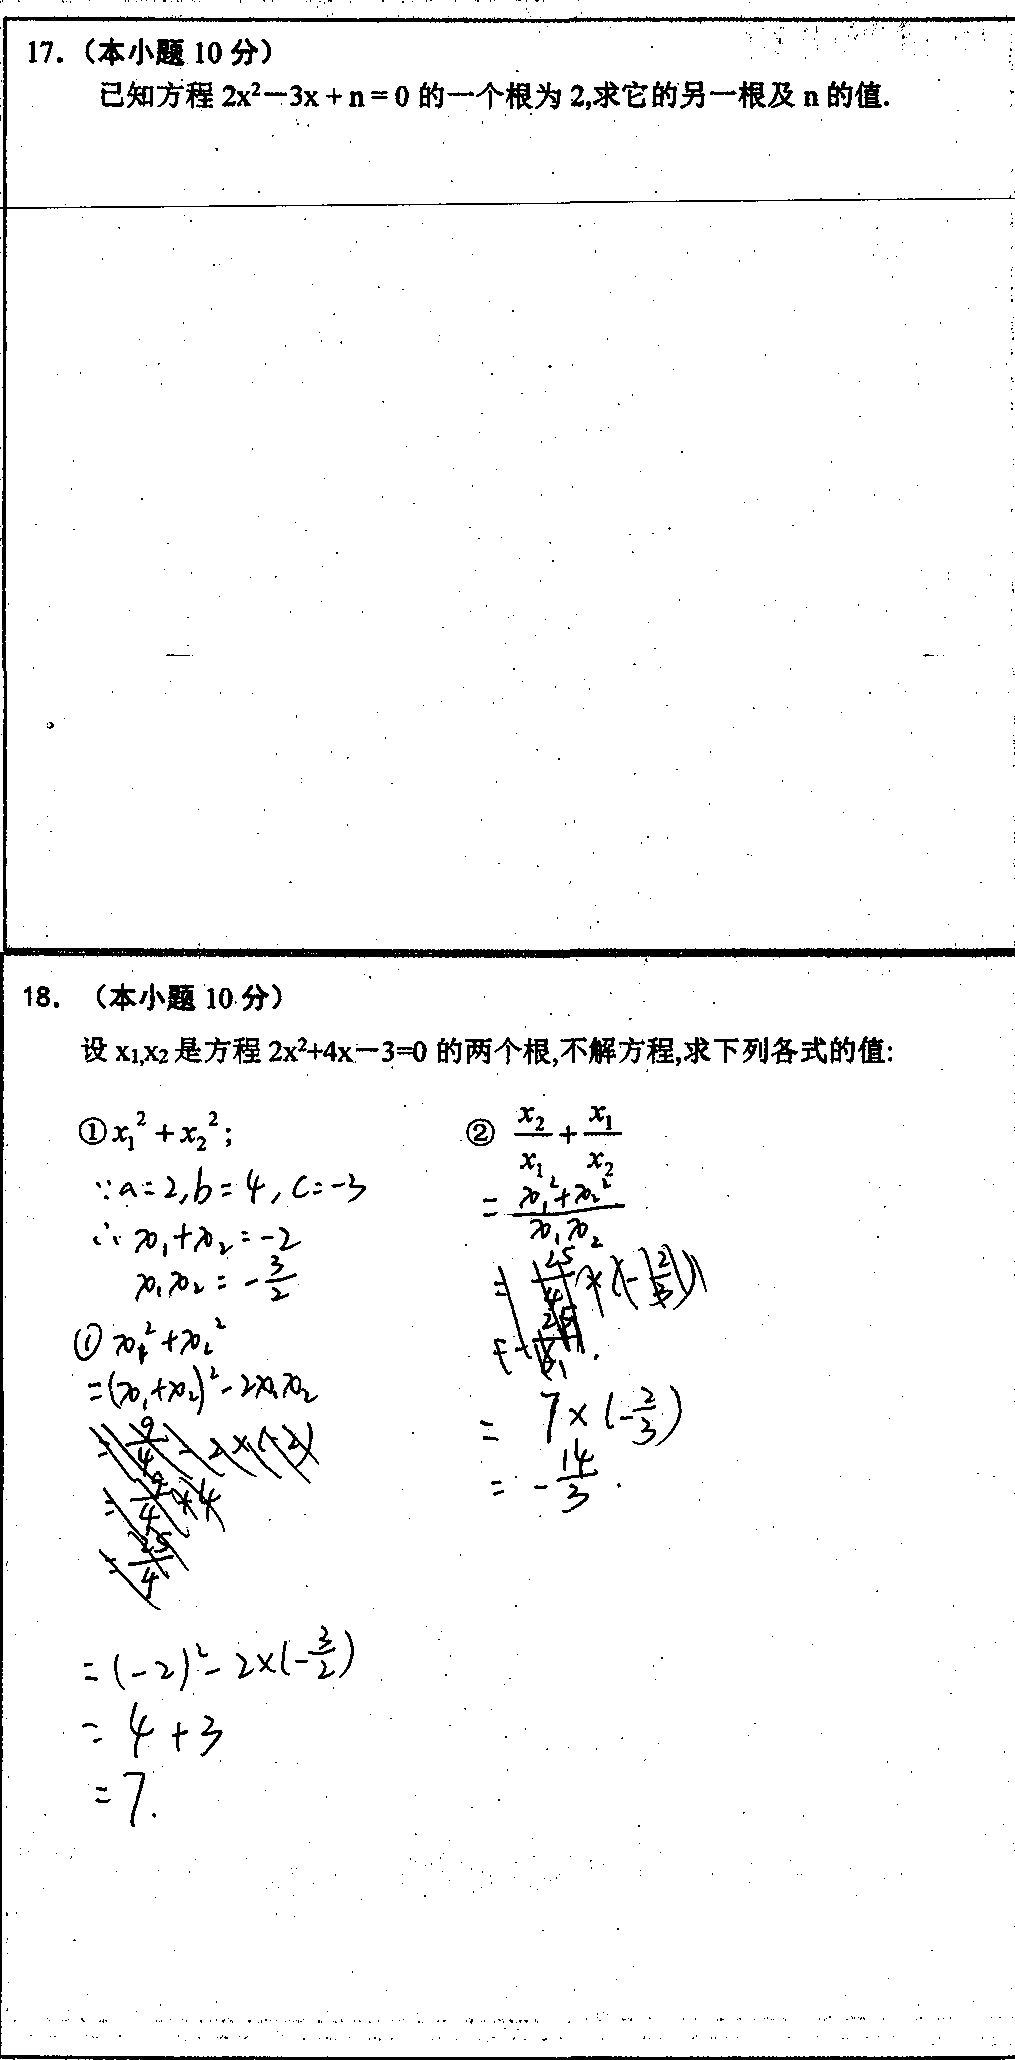 17.（本小题 10 分）
已知方程 2x²－3x + n = 0 的一个根为 2,求它的另一根及 n 的值.
18. （本小题 10 分）
设 x₁,x₂ 是方程 2x²+4x－3=0 的两个根,不解方程,求下列各式的值:
① x₁² + x₂² ;
∵a=2,b=4,c=-3
∴ x₁+x₂=-2
x₁x₂=-3/2
① x₁²+x₂²
=(x₁+x₂)²-2x₁x₂
=(-2)²-2×(-3/2)
=4+3
=7.
② x₂/x₁ + x₁/x₂
= (x₁²+x₂²)/(x₁x₂)
= 7×(-2/3)
= -14/3 .